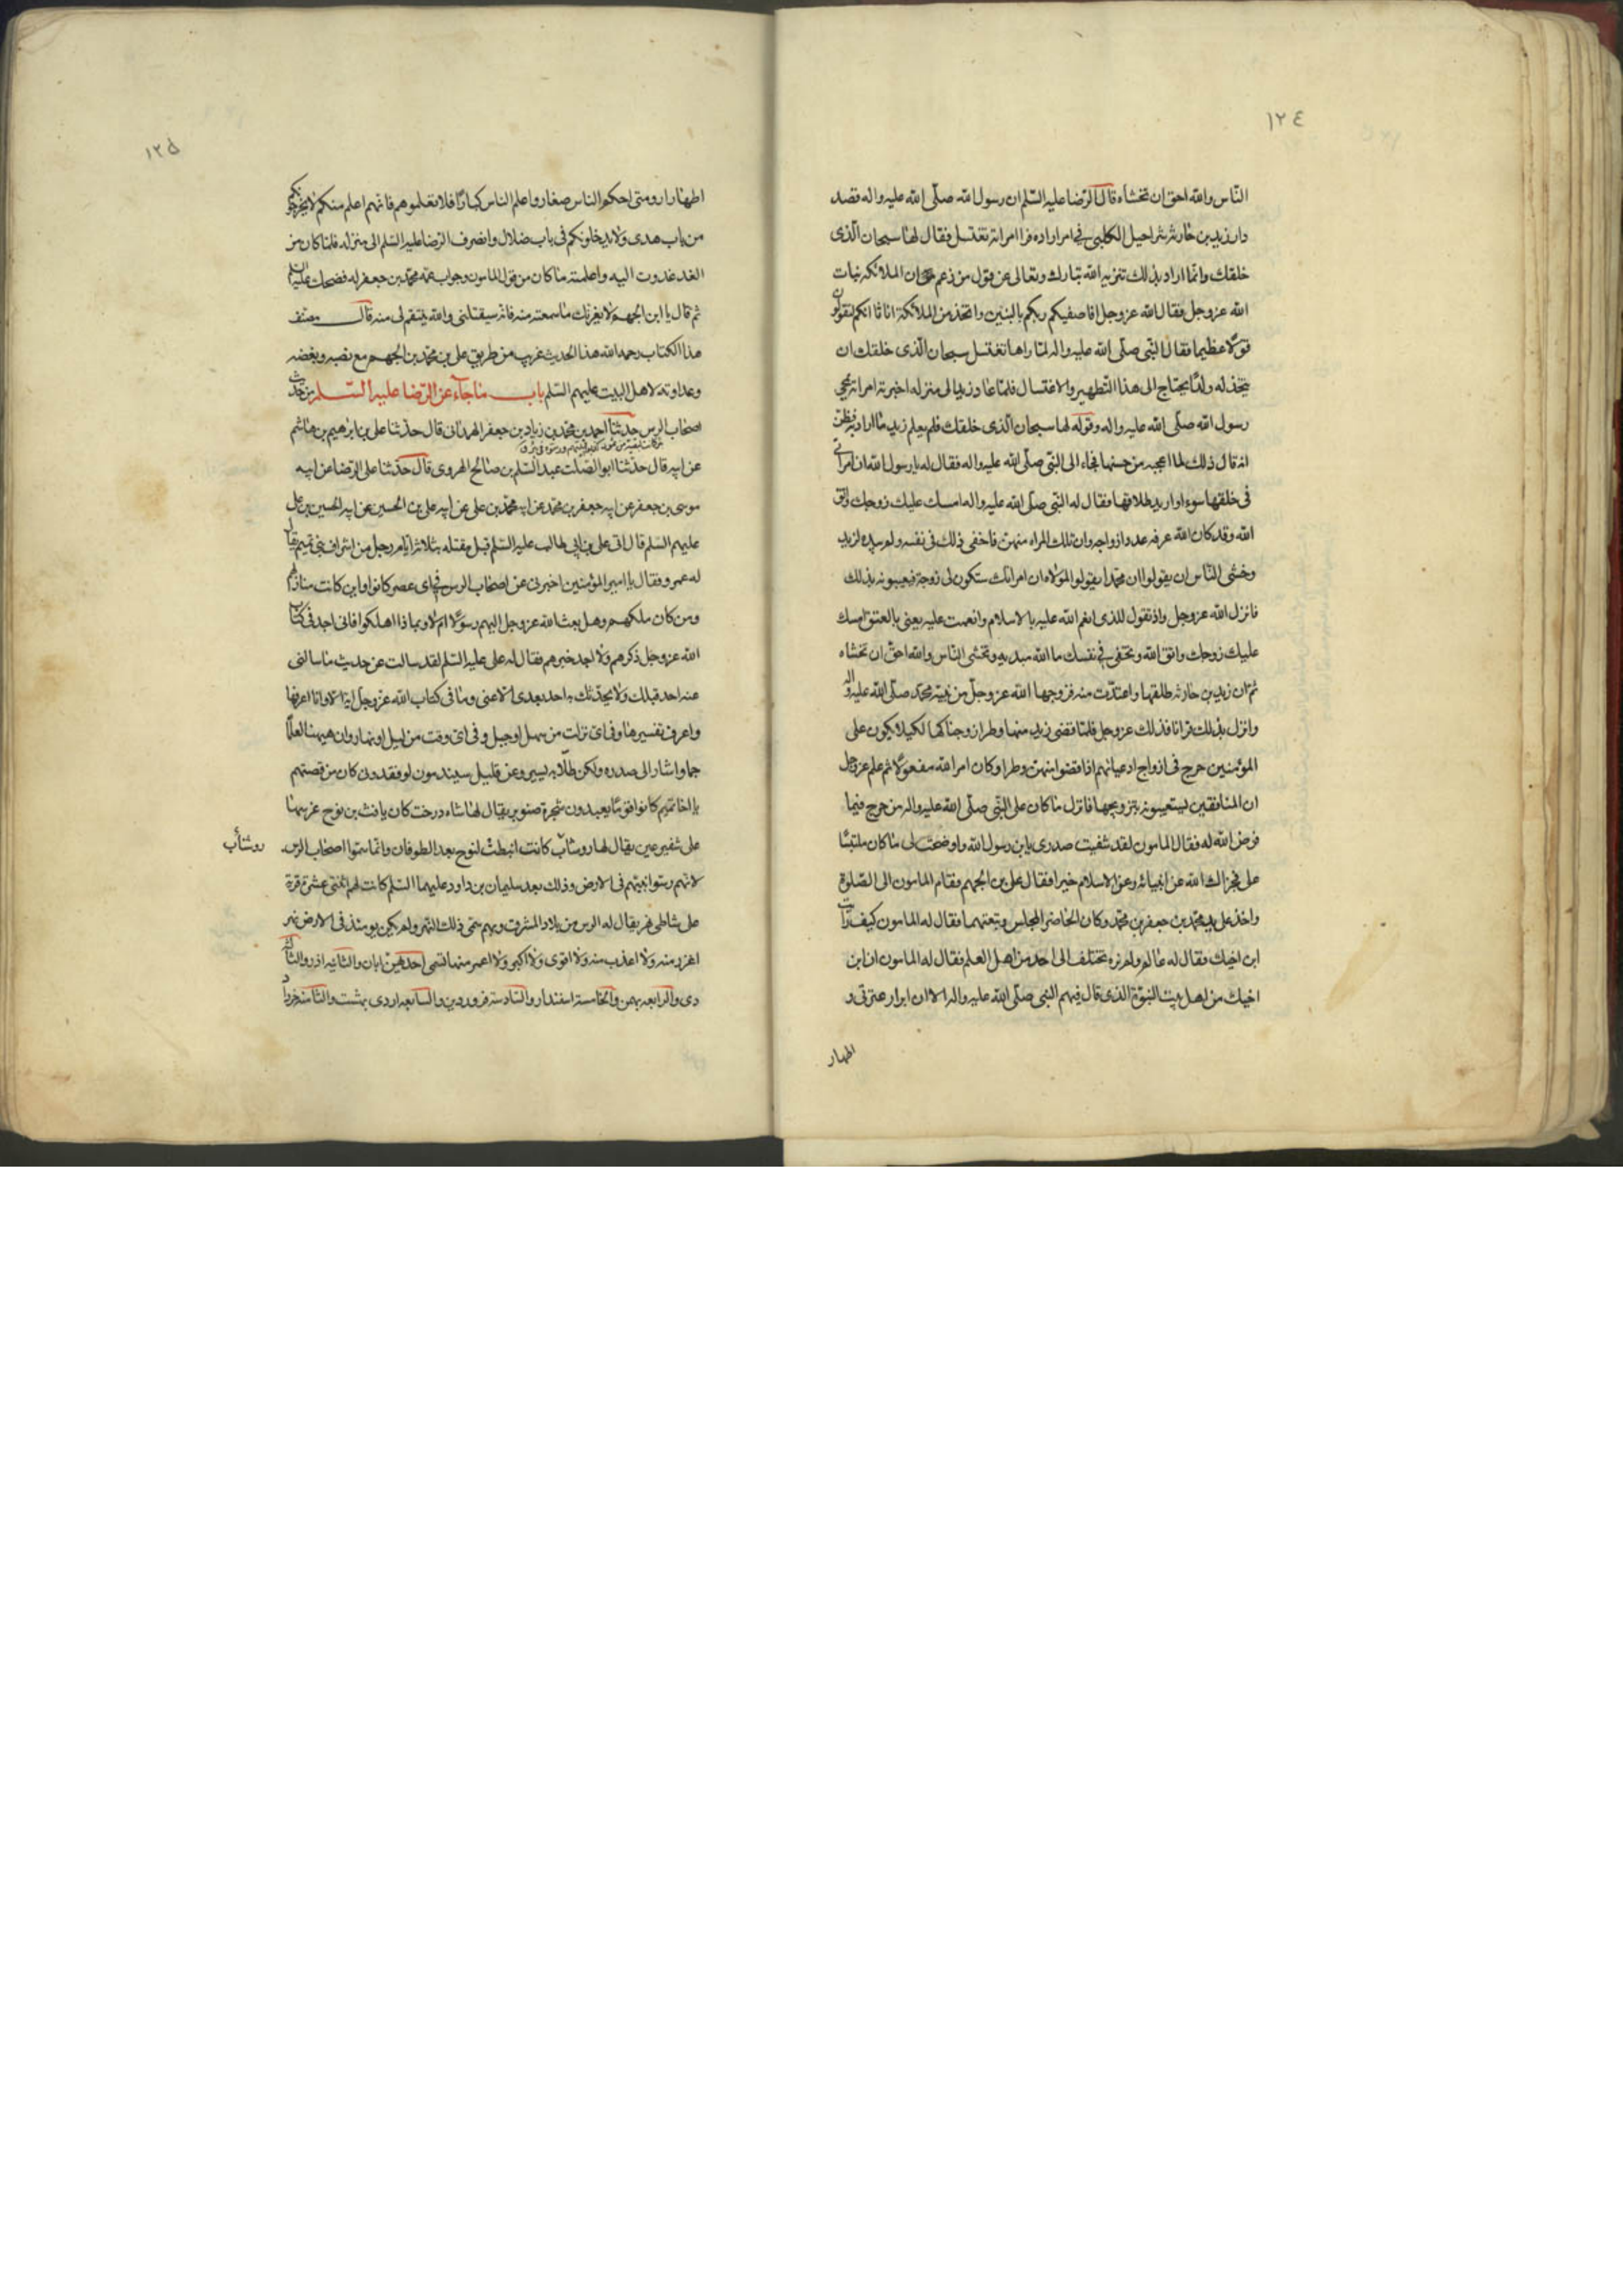 ١٢٤
النّاس والله احق ان تخشاه قال الرّضا عليه السّلم ان رسول الله صلّى الله عليه واله قصد
دار زيد بن حارثة بن شراحيل الكلبى فى امر اراده فرا امراته تغتسل فقال لها سبحان الّذى
خلقك وانّما اراد بذلك تنزيه الله تبارك وتعالى عن قول من زعم ان الملائكة بنات
الله عزوجل فقال الله عزوجل افاصفيكم ربكم بالبنين واتخذ من الملائكة اناثا انكم لتقولون
قولا عظيما فقال النّبى صلّى الله عليه واله لمّا راها تغتسل سبحان الّذى خلقك ان
يتّخذ له ولدًا يحتاج الى هذا التّطهير والاغتسال فلمّا عاد زيد الى منزله اخبرته امراته بمجئ
رسول الله صلّى الله عليه واله وقوله لها سبحان الّذى خلقك فلم يعلم زيد ما اراد به فظن
انه قال ذلك لما اعجبه من حسنها فجاء الى النّبى صلّى الله عليه واله فقال له يا رسول الله ان امراتى
فى خلقها سوء واريد طلاقها فقال له النّبى صلّى الله عليه واله امسك عليك زوجك واتق
الله وقد كان الله عرفه عدد ازواجه وان تلك المراه منهن فاخفى ذلك فى نفسه ولم يبده لزيد
وخشى النّاس ان يقولوا ان محمّدا يقول لمولاه ان امراتك ستكون لى زوجة فيعيبونه بذلك
فانزل الله عزوجل واذ تقول للذى انعم الله عليه بالاسلام وانعمت عليه يعنى بالعتق امسك
عليك زوجك واتق الله وتخفى فى نفسك ما الله مبديه وتخشى النّاس والله احقّ ان تخشاه
ثم ان زيد بن حارثه طلقها واعتدّت منه فزوجها الله عزوجل من نبيّه محمّد صلّى الله عليه واله
وانزل بذلك قرانا فذلك عزوجل فلمّا قضى زيد منها وطرا زوجناكها لكيلا يكون على
المؤمنين حرج فى ازواج ادعيائهم اذا قضوا منهن وطرا وكان امر الله مفعولا ثم علم عزوجل
ان المنافقين ليستعيبونه بتزويجها فانزل ما كان على النّبى صلّى الله عليه واله من حرج فيما
فرض الله له فقال المامون لقد شفيت صدرى يابن رسول الله واوضحت لى ما كان ملتبسًا
على فجزاك الله عن انبيائه وعن الاسلام خيرا فقال على بن الجهم فقام المامون الى الصّلوة
واخذ على يد محمّد بن جعفر بن محمّد وكان الحاضر المجلس وتبعتهما فقال له المامون كيف رايت
ابن اخيك فقال له عالم ولم نره يختلف الى احد من اهل العلم فقال له المامون ان ابن
اخيك من اهل بيت النبوّة الذى قال فيهم النبى صلّى الله عليه واله الا ان ابرار عترتى و
اطهار
١٢٥
اطهار ارومتى احكم الناس صغار واعلم الناس كبارًا فلا تعلموهم فانهم اعلم منكم لا يخرجونكم
من باب هدى ولا يدخلونكم فى باب ضلال وانصرف الرّضا عليه السّلم الى منزله فلمّا كان من
الغد غدوت اليه واعلمته ما كان من قول المامون وجواب عمّه محمّد بن جعفر له فضحك عليه السّلم
ثم قال يا ابن الجهم لا يغرنّك ما سمعته منه فانه سيقتلنى والله ينتقم لى منه قال مصنف
هذا الكتاب رحمه الله هذا الحديث غريب من طريق على بن محمّد بن الجهم مع نصبه وبغضه
وعداوته لاهل البيت عليهم السّلم باب ما جاء عن الرّضا عليه السّلم من حديث
اصحاب الرس حدثنا احمد بن محمّد بن زياد بن جعفر الهمدانى قال حدثنا على بن ابرهيم بن هاشم
عن ابيه قال حدّثنا ابو الصّلت عبد السّلم بن صالح الهروى قال حدّثنا على الرّضا عن ابيه
موسى بن جعفر عن ابيه جعفر بن محمّد عن ابيه محمّد بن على عن ابيه على بن الحسين عن ابيه الحسين بن على
عليهم السّلم قال اتى على بن ابى طالب عليه السّلم قبل مقتله بثلاثة ايام رجل من اشراف بنى تميم يقال
له عمرو فقال يا امير المؤمنين اخبرنى عن اصحاب الرس فى اى عصر كانوا واين كانت منازلهم
ومن كان ملكهم وهل بعث الله عزوجل اليهم رسولا ام لا وبماذا اهلكوا فانى اجد فى كتاب
الله عزوجل ذكرهم ولا اجد خبرهم فقال له على عليه السّلم لقد سالت عن حديث ما سالنى
عنه احد قبلك ولا يحدثك به احد بعدى الا عنى وما فى كتاب الله عزوجل اية الا وانا اعرفها
واعرف تفسيرها وفى اى مكان نزلت من سهل او جبل وفى اى وقت من ليل او نهار وان هيهنا لعلما
جما واشار الى صدره ولكن طلابه يسير وعن قليل سيندمون لو فقدونى كان من قصتهم
يا اخا تميم كانوا قوما يعبدون شجرة صنوبر يقال لها شاه درخت كان يافث بن نوح غرسها
على شفير عين يقال لها روشاب كانت انبطت لنوح بعد الطوفان وانّما سمّوا اصحاب الرس
روشأب
لانهم رسّوا نبيّهم فى الارض وذلك بعد سليمان بن داود عليهما السّلم كانت لهم اثنتى عشرة قرية
على شاطئ نهر يقال له الرس من بلاد المشرق وبهم سمّى ذلك النهر ولم يكن يومئذ فى الارض نهر
اغزر منه ولا اعذب منه ولا اقوى ولا اكبر ولا اعمر منها تسمى احدهن ابان والثانيه اذر والثالثه
دى والرابعه بهمن والخامسة اسفندار والسّادسة فروردين والسابعه اردى بهشت والثامنه خرداد